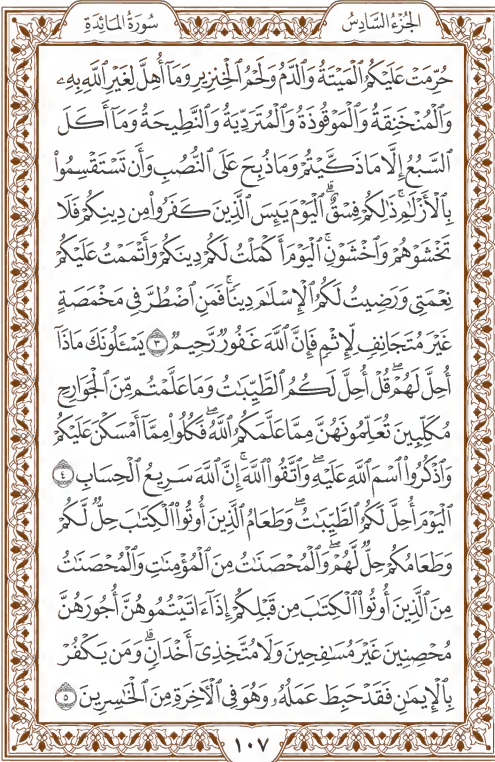 الجُزْءُ السَّادِسُ
سُورَةُ المَائـِدَةِ
حُرِّمَتْ عَلَيْكُمُ ٱلْمَيْتَةُ وَٱلدَّمُ وَلَحْمُ ٱلْخِنزِيرِ وَمَآ أُهِلَّ لِغَيْرِ ٱللَّهِ بِهِۦ
وَٱلْمُنْخَنِقَةُ وَٱلْمَوْقُوذَةُ وَٱلْمُتَرَدِّيَةُ وَٱلنَّطِيحَةُ وَمَآ أَكَلَ
ٱلسَّبُعُ إِلَّا مَا ذَكَّيْتُمْ وَمَا ذُبِحَ عَلَى ٱلنُّصُبِ وَأَن تَسْتَقْسِمُوا۟
بِٱلْأَزْلَـٰمِ ۚ ذَٰلِكُمْ فِسْقٌ ۗ ٱلْيَوْمَ يَئِسَ ٱلَّذِينَ كَفَرُوا۟ مِن دِينِكُمْ فَلَا
تَخْشَوْهُمْ وَٱخْشَوْنِ ۚ ٱلْيَوْمَ أَكْمَلْتُ لَكُمْ دِينَكُمْ وَأَتْمَمْتُ عَلَيْكُمْ
نِعْمَتِى وَرَضِيتُ لَكُمُ ٱلْإِسْلَـٰمَ دِينًا ۚ فَمَنِ ٱضْطُرَّ فِى مَخْمَصَةٍ
غَيْرَ مُتَجَانِفٍ لِّإِثْمٍ ۙ فَإِنَّ ٱللَّهَ غَفُورٌ رَّحِيمٌ ٣ يَسْـَٔلُونَكَ مَاذَآ
أُحِلَّ لَهُمْ ۖ قُلْ أُحِلَّ لَكُمُ ٱلطَّيِّبَـٰتُ ۙ وَمَا عَلَّمْتُم مِّنَ ٱلْجَوَارِحِ
مُكَلِّبِينَ تُعَلِّمُونَهُنَّ مِمَّا عَلَّمَكُمُ ٱللَّهُ ۖ فَكُلُوا۟ مِمَّآ أَمْسَكْنَ عَلَيْكُمْ
وَٱذْكُرُوا۟ ٱسْمَ ٱللَّهِ عَلَيْهِ ۖ وَٱتَّقُوا۟ ٱللَّهَ ۚ إِنَّ ٱللَّهَ سَرِيعُ ٱلْحِسَابِ ٤
ٱلْيَوْمَ أُحِلَّ لَكُمُ ٱلطَّيِّبَـٰتُ ۖ وَطَعَامُ ٱلَّذِينَ أُوتُوا۟ ٱلْكِتَـٰبَ حِلٌّ لَّكُمْ
وَطَعَامُكُمْ حِلٌّ لَّهُمْ ۖ وَٱلْمُحْصَنَـٰتُ مِنَ ٱلْمُؤْمِنَـٰتِ وَٱلْمُحْصَنَـٰتُ
مِنَ ٱلَّذِينَ أُوتُوا۟ ٱلْكِتَـٰبَ مِن قَبْلِكُمْ إِذَآ ءَاتَيْتُمُوهُنَّ أُجُورَهُنَّ
مُحْصِنِينَ غَيْرَ مُسَـٰفِحِينَ وَلَا مُتَّخِذِىٓ أَخْدَانٍ ۗ وَمَن يَكْفُرْ
بِٱلْإِيمَـٰنِ فَقَدْ حَبِطَ عَمَلُهُۥ وَهُوَ فِى ٱلْـَٔاخِرَةِ مِنَ ٱلْخَـٰسِرِينَ ٥
١٠٧